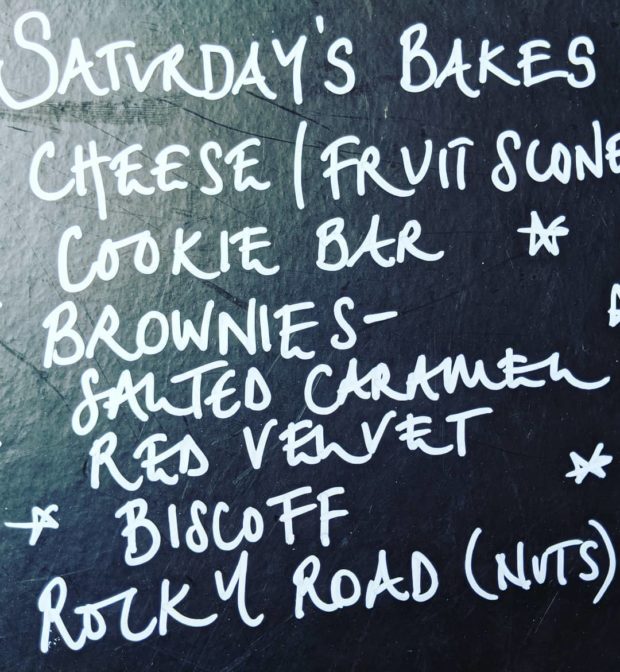 SATURDAY'S BAKES
CHEESE / FRUIT SCONE
COOKIE BAR
BROWNIES-
SALTED CARAMEL
RED VELVET
BISCOFF
ROCKY ROAD (NUTS)